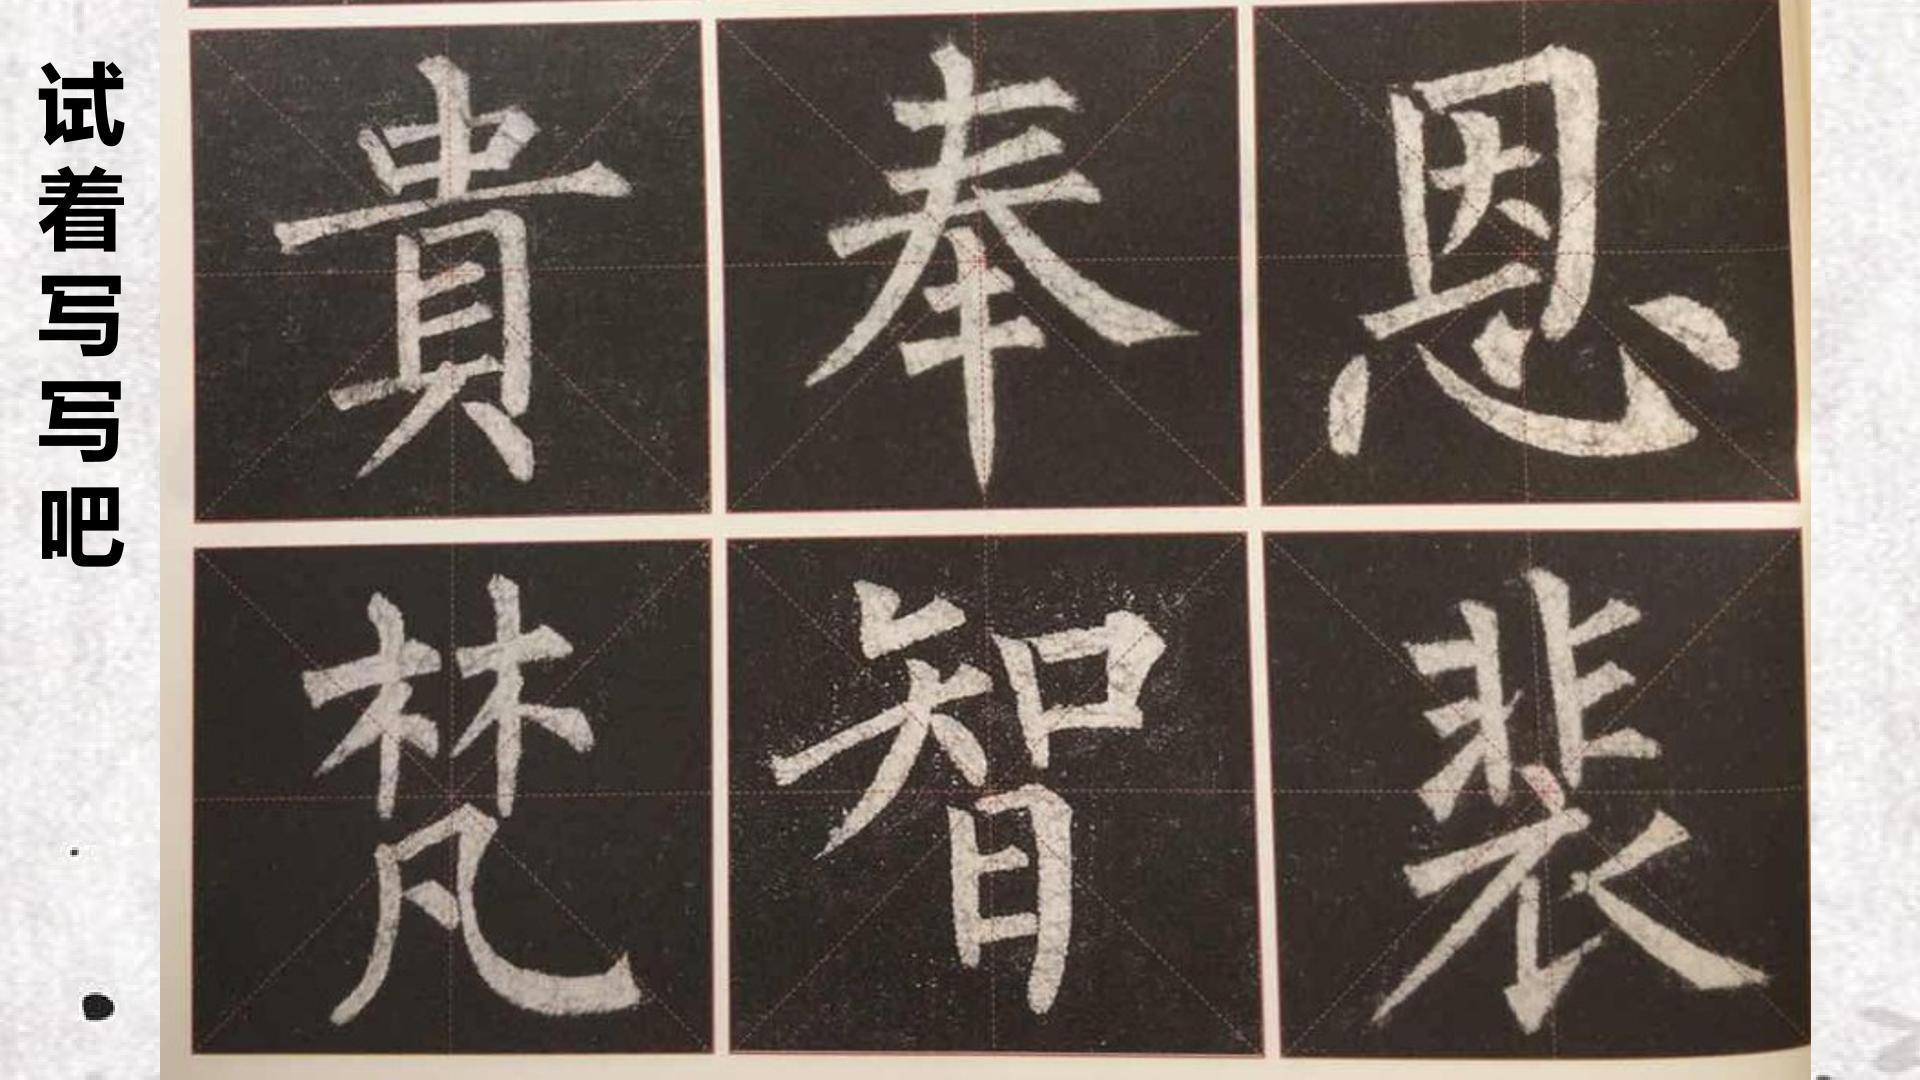 试着写写吧
貴奉恩
梵智裴